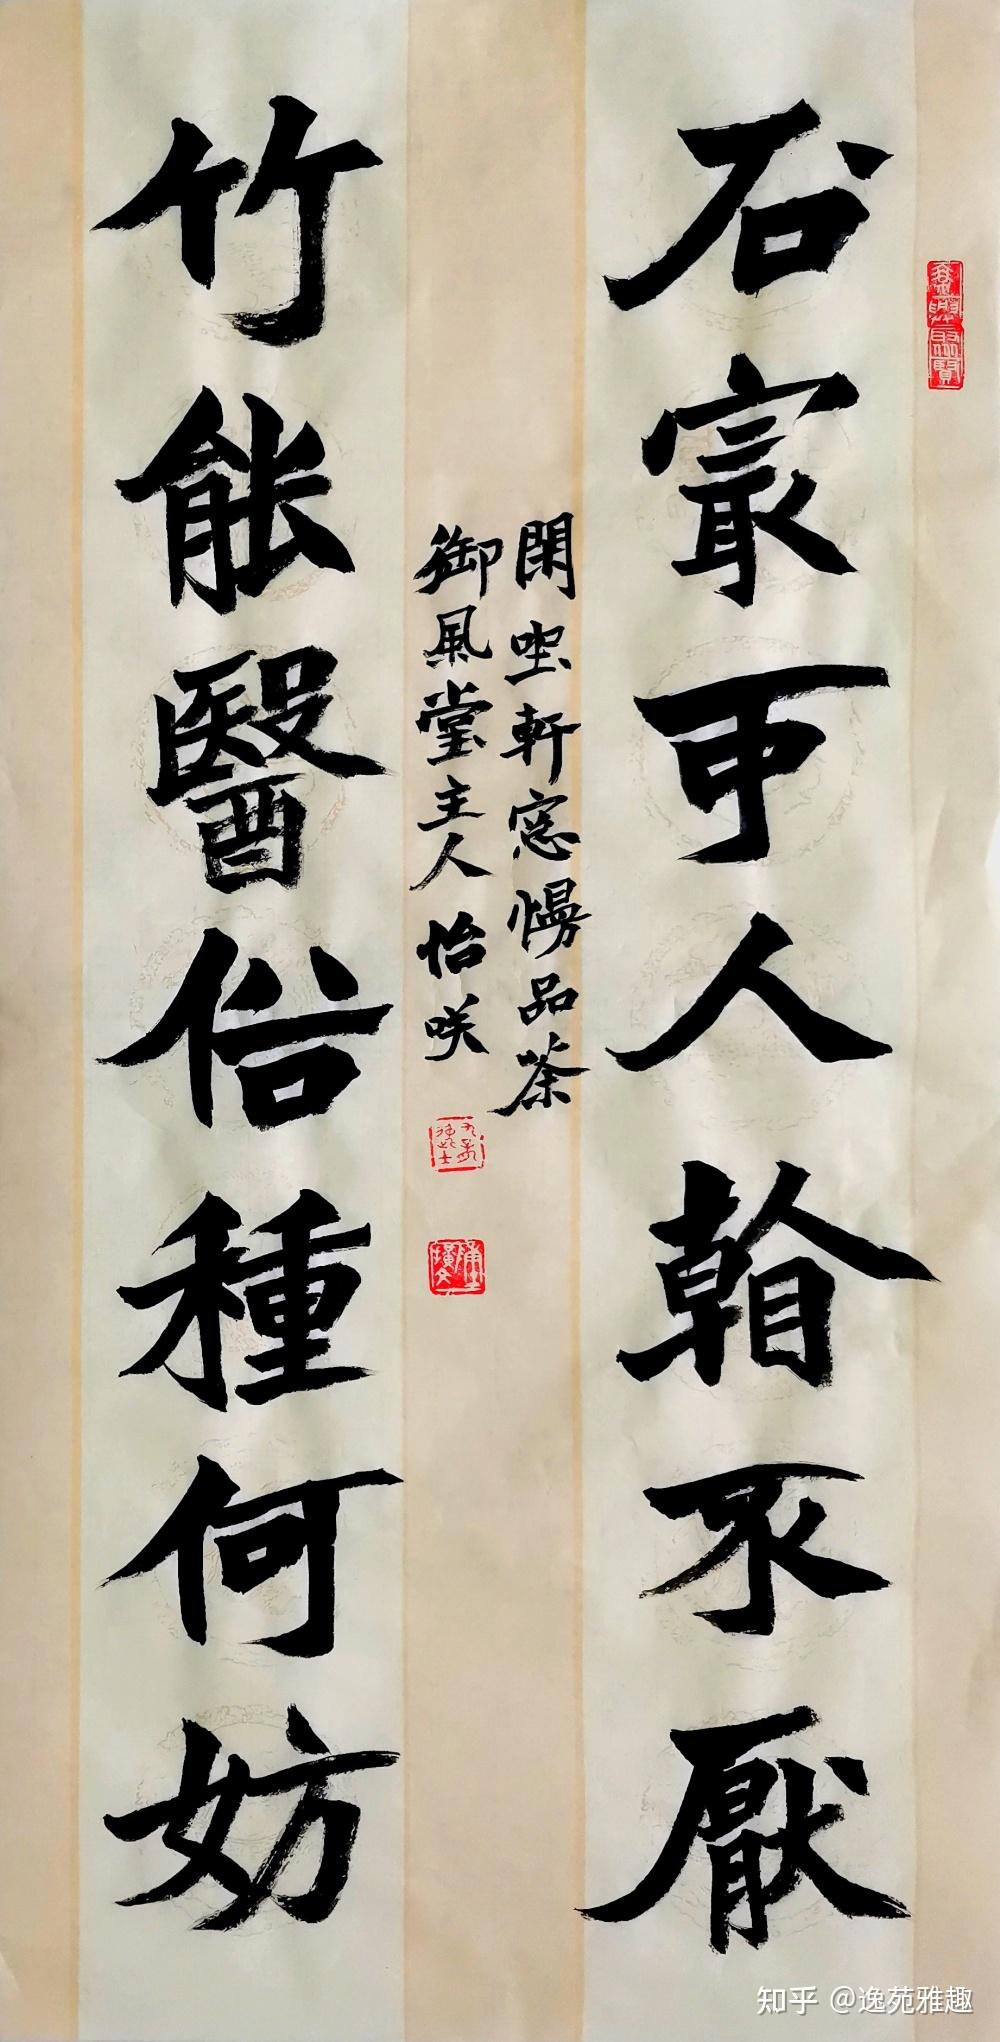 石㝡可人看不厭
閑坐軒窓慢品茶
御風堂主人怡咲
竹能醫俗種何妨
知乎 @逸苑雅趣